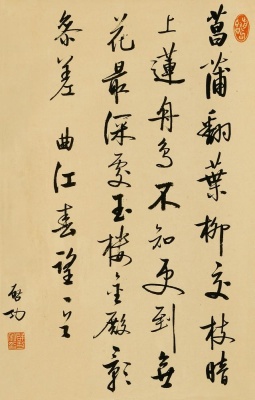 菖蒲翻葉柳交枝暗
上蓮舟鳥不知更到無
花最深處玉樓金殿影
參差 曲江春望
啟功